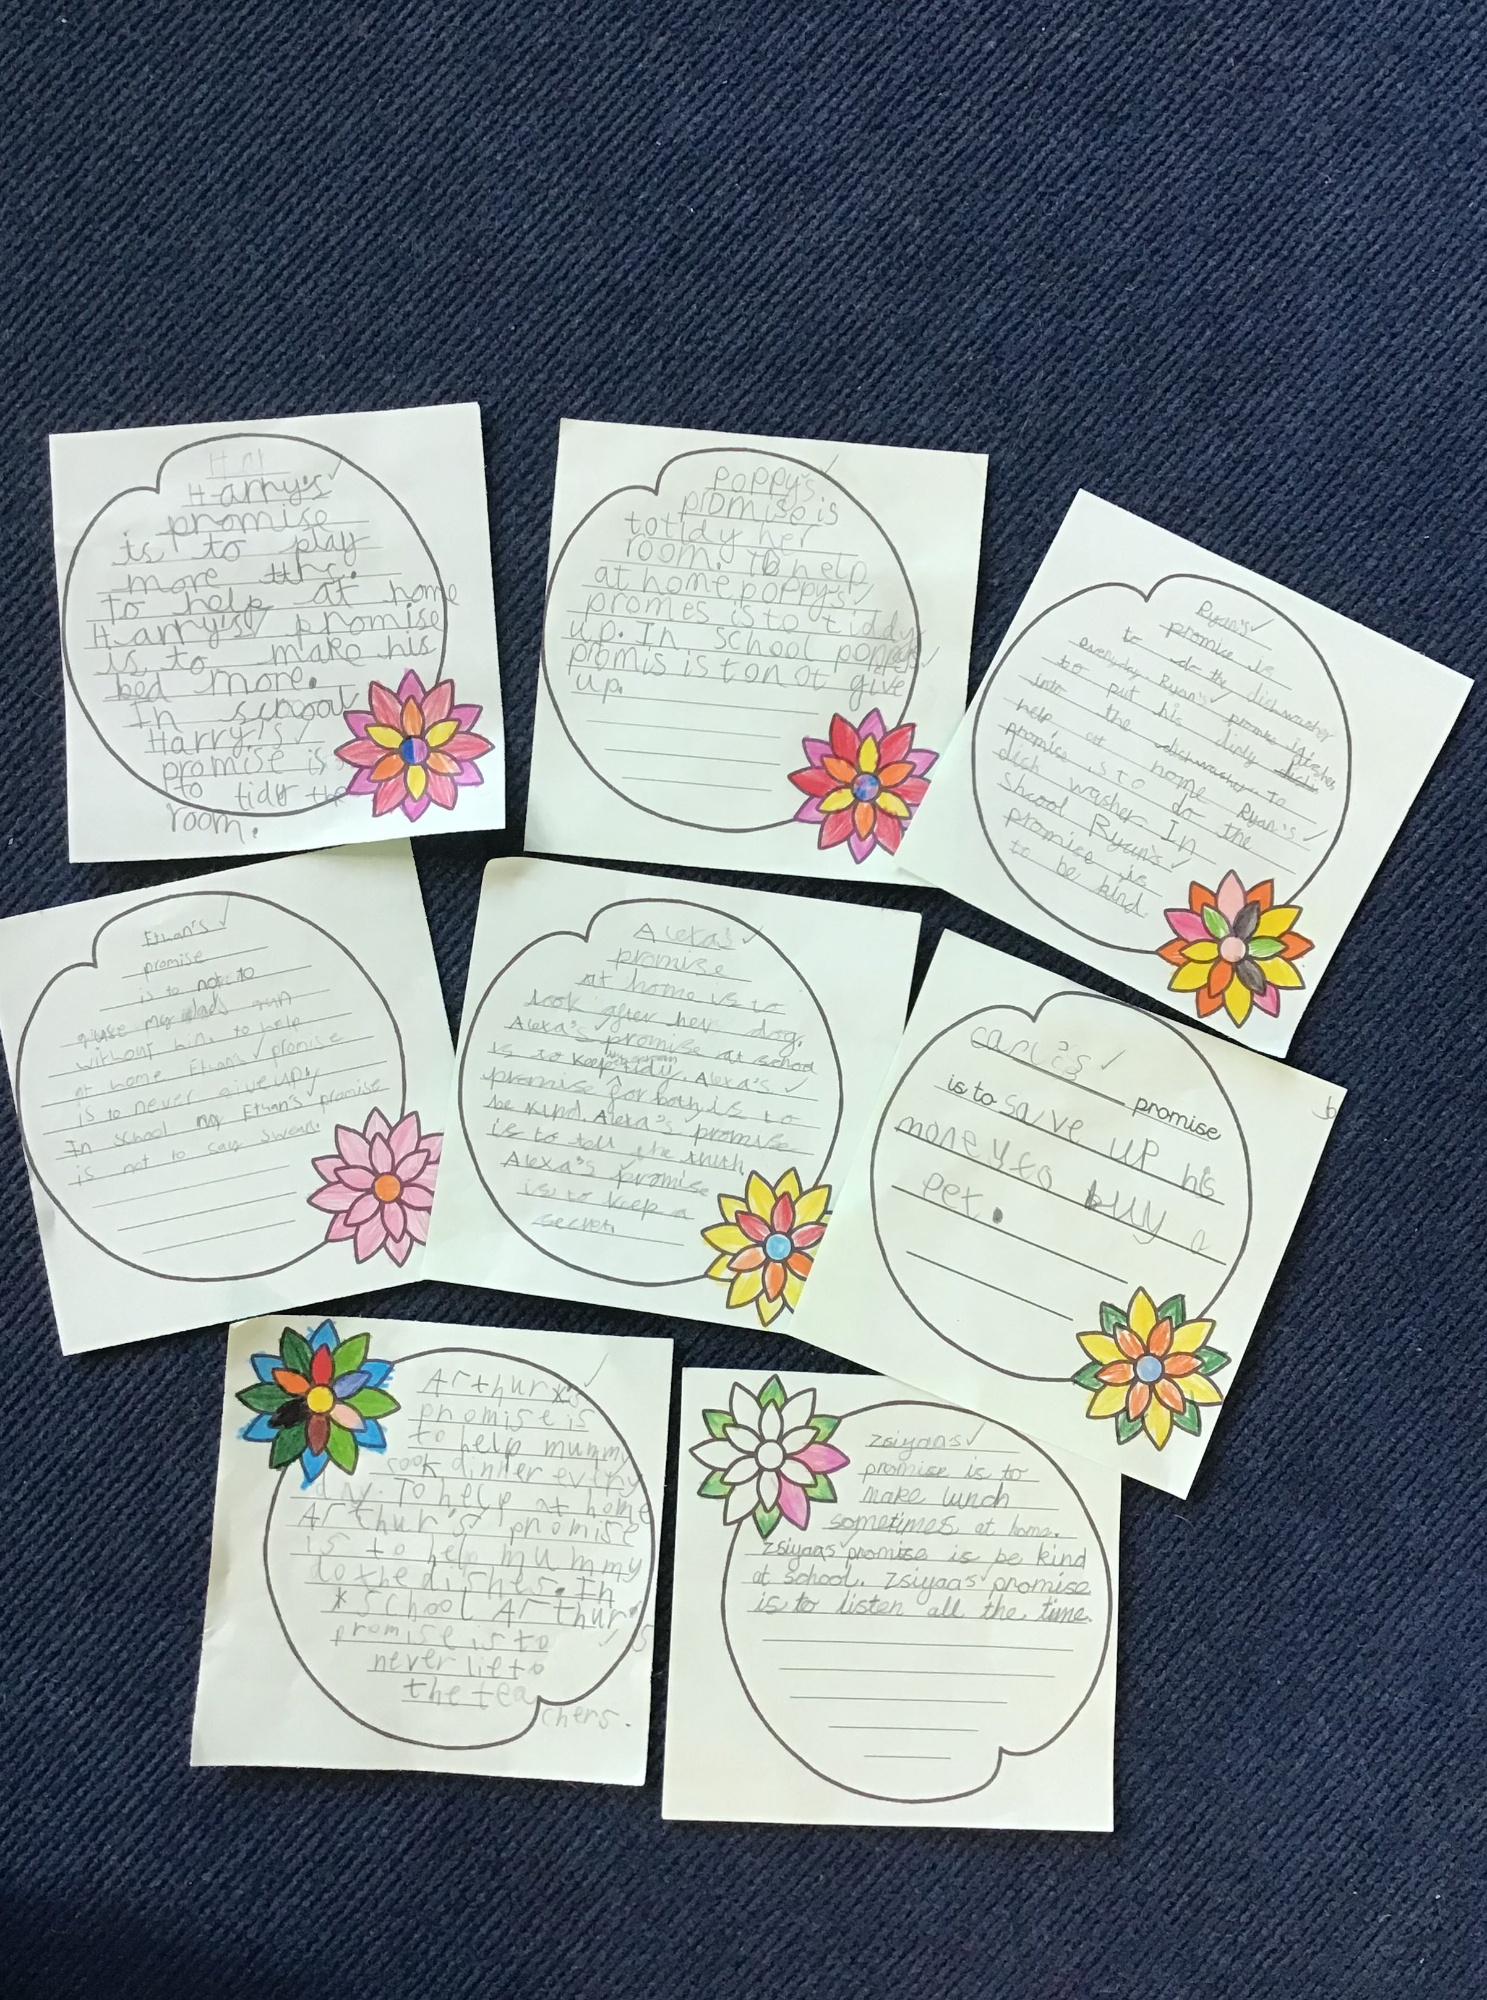 Harry's
promise
is to play
more
to help at home
Harry's promise
is to make his
bed more.
In school
Harry's
promise is
to tidy the
room.
Poppy's
promise is
to tidy her
room. To help
at home poppy's
promes is to tiddy
up. In school
promis is to not give
up.
Ryan's
promise is
to do the dishwasher
everyday Ryan's promise is
to put his dirty dishes
into the dishwasher To
help at home Ryan's
promise is to do the
dish washer In
Shcool Ryan's
promise is
to be kind.
Ethan's
promise
is to not to
my dads gun
without him. to help
at home Ethans promise
is to never give up.
In school Ethan's promise
is not to say swear.
Alexa's
promise
at home is to
look after her dog.
Alexa's promise at school
is to keep tidy. Alexa's
promise for both is to
be kind. Alexa's promise
is to tell the truth
Alexa's promise
is to keep a
secret.
promise
is to save up his
money to buy a
pet.
Arthur's
promise is
to help mummy
cook dinner every
day. To help at home
Arthur's promise
is to help mummy
do the dishes. In
* school Arthur's
promise is to
never lie to
the tea
chers.
Zsiyans
promise is to
make lunch
sometimes at home.
Zsiyaas promise is be kind
at school. Zsiyaas promise
is to listen all the time.